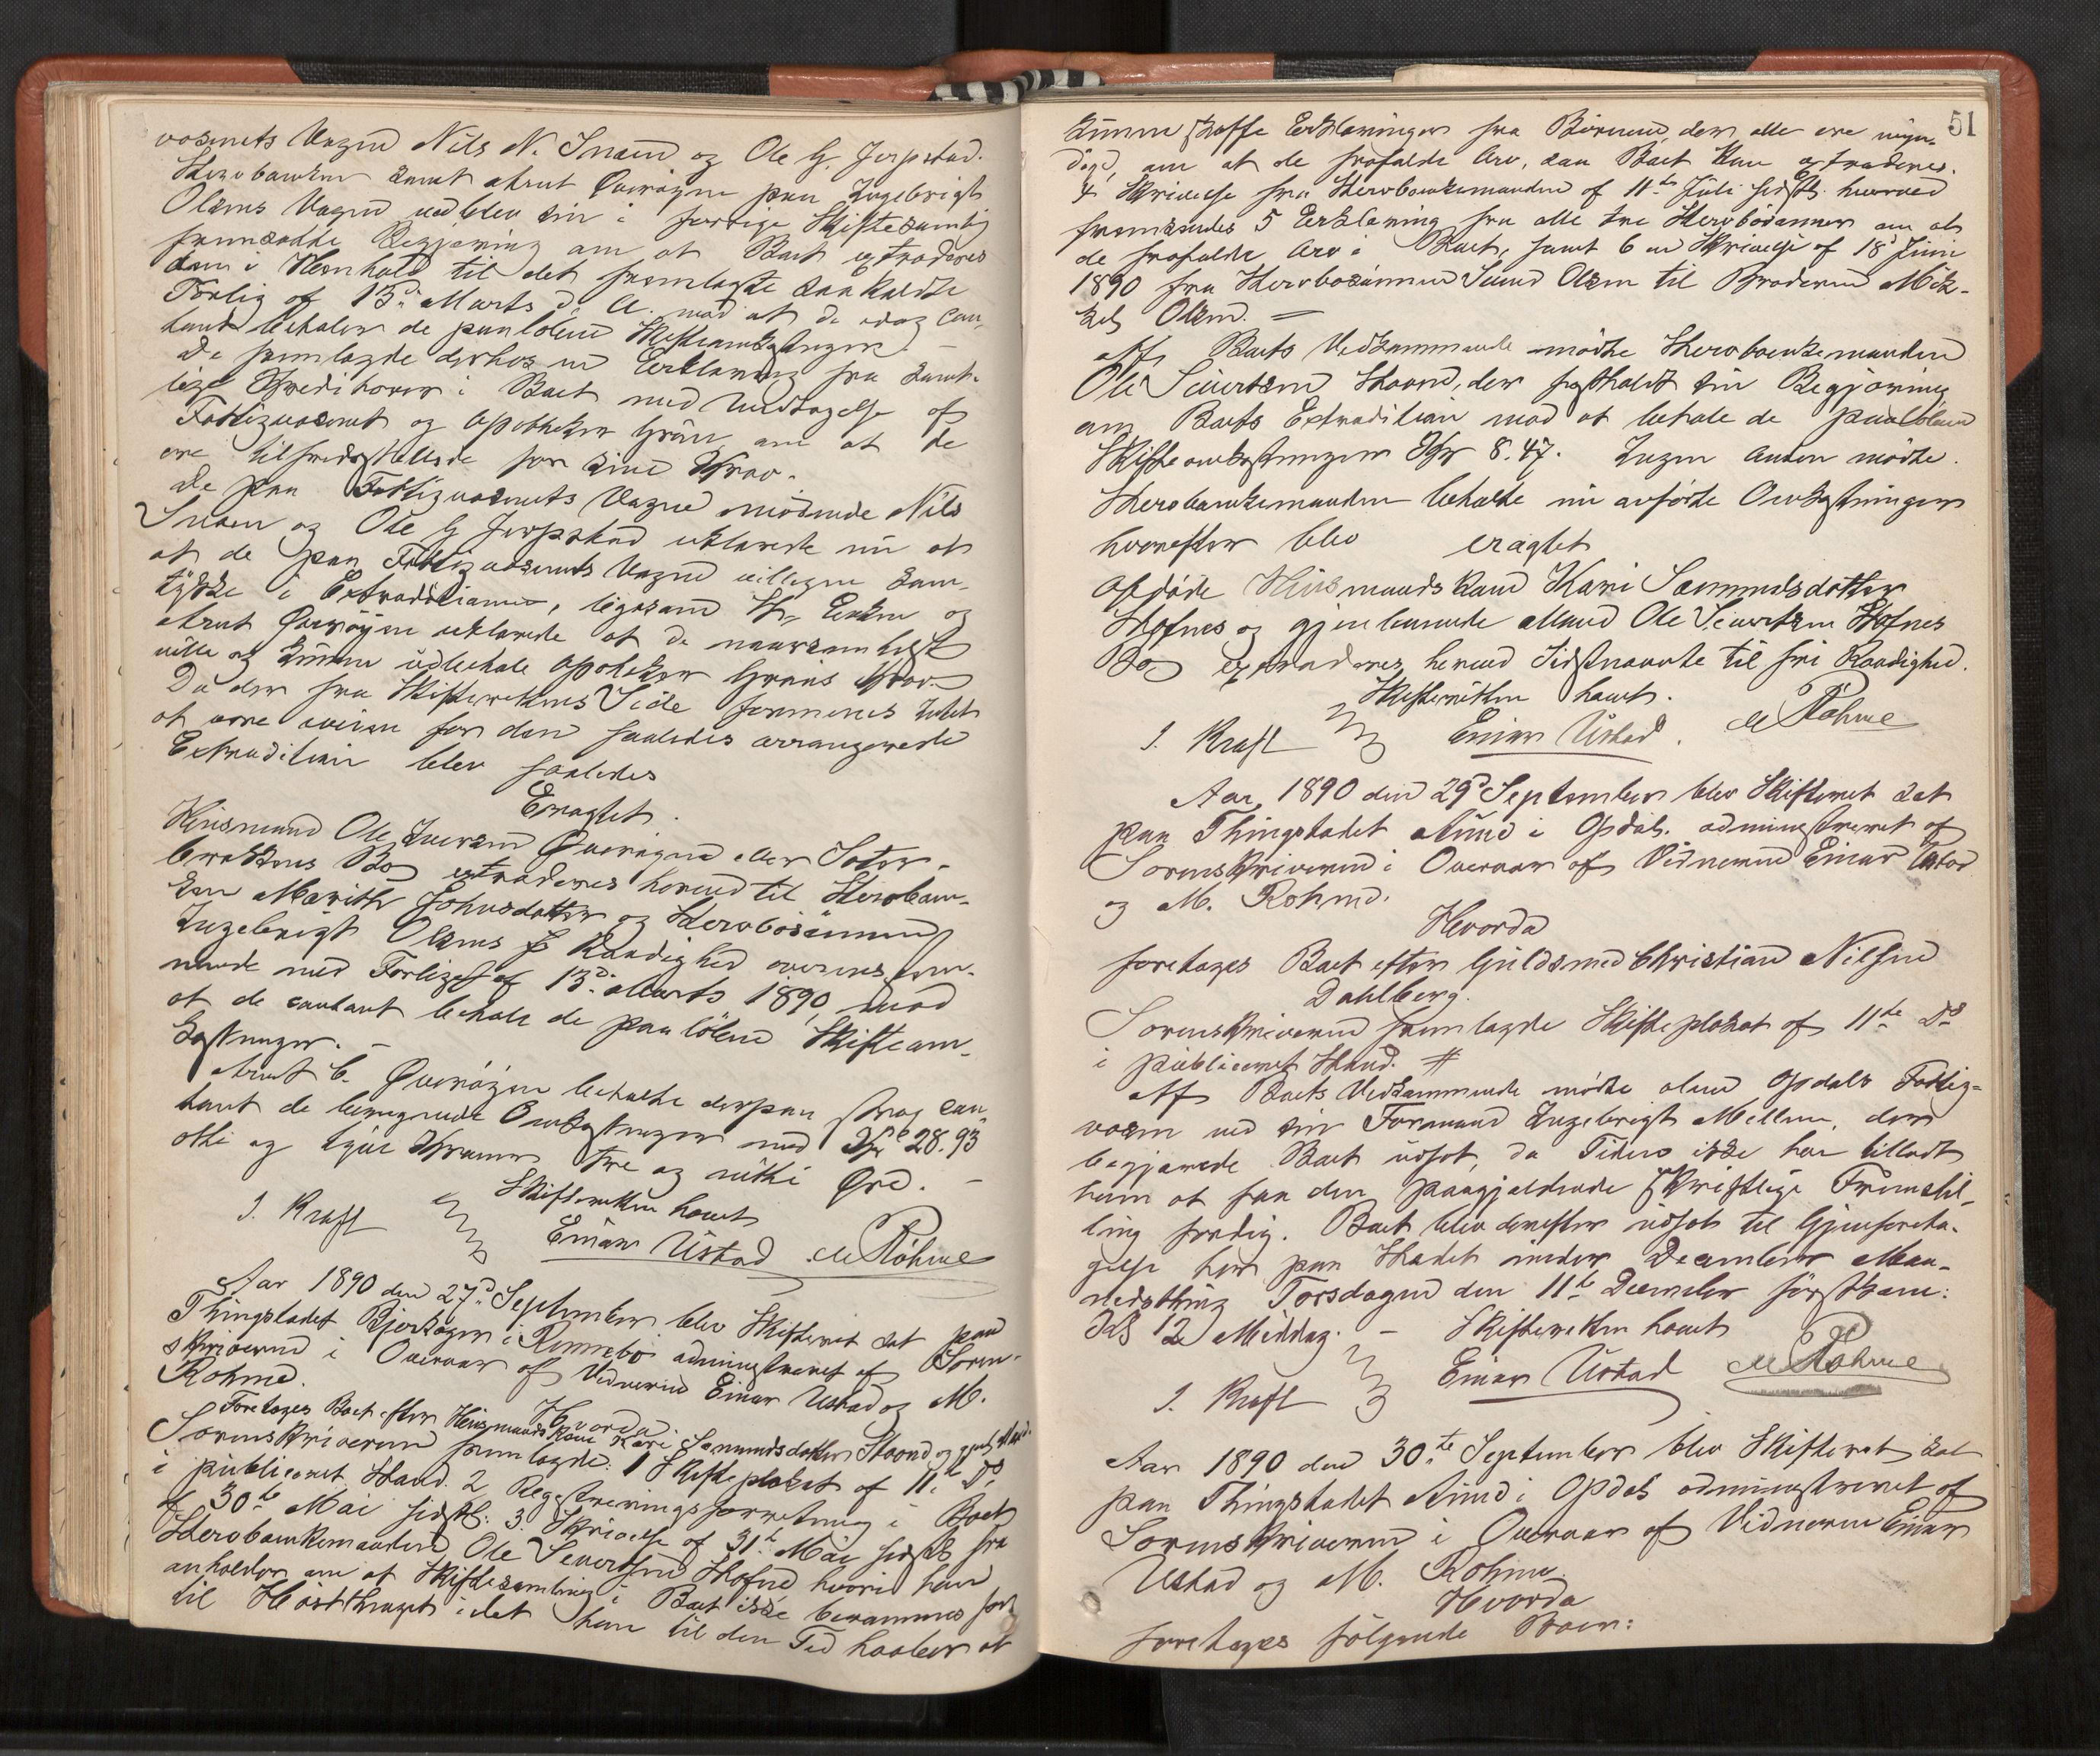 væsenets Vegne Nils N. Snøen og Ole G. Jerpstad.
Skrobanken samt Arnt Qverøyne paa Ingebrigt
Olsens Vegne vedblev sin i forrige Skiftesamling
fremsatte Begjæring om at Boet extraderes
dem i Henhold til det fremlagte saakaldte
Forlig af 13d Marts d. A. mod at de idag con-
tant betaler de paaløbne Skifteomkostninger. –
De fremlagde derhos en Erklæring fra samt-
lige Kreditorer i Boet med Undtagelse af
Fattigvæsenet og Apotheker Grøn om at de
ere tilfredsstillede for sine Krav.
De paa Fattigvæsenets Vegne mødende Nils
Snøen og Ole G Jerpstad erklærede nu at
at de paa Fattigvæsenets Vegne villegen sam-
tykke i Extraditionen, ligesom H. Enken og
Arnt Qverøyne erklærede at de naarsomhelst
ville og kunne udbetale Apotheker Grøns Krav.
Da der fra Skifterettens Side formenes Intet
at være iveien for den saaledes arrangerede
Extradition blev saaledes
Eragtet.
Husmand Ole Iversen Qverøyne eller Sæter-
brækkens Bo extraderes herved til Stervboen-
ken Marith Johnsdatter og Stervbosønnen
Ingebrigt Olsens fr Raadighed overensstem-
mende med Forliget af 13d Marts 1890, mod
at de contant betale de paaløbne Skifteom-
kostninger. –
Arnt C. Qverøyne betalte derpaa strax con-
tant de beregnede Omkostninger med Kr 28.93
otti og tyve Kroner tre og nitti Øre. –
Skifteretten hævet
I. Kraft Einar Ustad M Rohme
Aar 1890 den 27d September blev Skifteret sat paa
Thingstedet Bjerkager i Rennebo administreret af Soren-
skriveren i Overvær af Vidnerne Einar Ustad og M.
Rohme.
Hvorda
Foretages Boet efter Husmandskone Kari Sæmundsdatter Skaane og gjenl. Mand.
Sorenskriveren fremlagde: 1 Skifteplakat af 11te Ds
i publiceret Stand. 2 Registreringsforretning i Boet
af 30te Mai sidstl. 3. Skrivelse af 31te Mai sidstl. fra
Stervboenkemanden Ole Sivertsen Hofnes hvori han
anholder om at Skiftesamling i Boet ikke berammes før
til Høstthinget idet han til den Tid haaber at
51
kunne skaffe Erklæringer fra Børnene, der alle ere myn-
dige, om at de frafalde Arv, saa Boet kan extraderes.
4 Skrivelse fra Stervboenkemanden af 11te Juli sidstl. hvorved
fremsendes 5 Erklæring fra alle tre Stervbosønner om at
de frafalde Arv i Boet, samt 6 en Skrivelse af 18d Juni
1890 fra Stervbosønnen Sivert Olsen til Broderen Mik-
kel Olsen. =
Af Boets Vedkommende mødte Stervboenkemanden
Ole Sivertsen Skaane, der fastholdt sin Begjæring
om Boets Extradition mod at betale de paaløbne
Skifteomkostninger Kr 8.47. Ingen Anden mødte.
Stervboenkemanden betalte nu anførte Omkostninger
hvorefter blev eragtet
Afdøde Husmandskone Kari Sæmundsdatter
Hofnes og gjenlevende Mand Ole Sivertsen Hofnes
Bo extraderes herved Sidstnævnte til fri Raadighed.
Skifteretten hævet.
I. Kraft Einar Ustad. M Rohme
Aar 1890 den 29d September blev Skifteret sat
paa Thingstedet Aune i Opdal administreret af
Sorenskriveren i Overvær af Vidnerne Einar Ustad
og M. Rohme.
Hvorda
foretages Boet efter Guldsmed Christian Nilsen
Dahlberg.
Sorenskriveren fremlagde Skifteplakat af 11te Ds
i publiceret Stand. #
Af Boets Vedkommende mødte alene Opdals Fattig-
væsen ved sin Formand Ingebrigt Mellem, der
begjærede Boet udsat, da Tiden ikke har tilladt
ham at faa den paagjældende skriftlige Fremstil-
ling færdig. Boet blev derefter udsat til Gjenforeta-
gelse her paa Stedet under December Maa-
nedsthing Torsdagen den 11te December førstkom:
Kl 12 Middag. – Skifteretten hævet
I. Kraft Einar Ustad M Rohme
Aar 1890 den 30te September blev Skifteret sat
paa Thingstedet Aune i Opdal administreret af
Sorenskriveren i Overvær af Vidnerne Einar
Ustad og M. Rohme.
Hvorda
foretages følgende Boer: